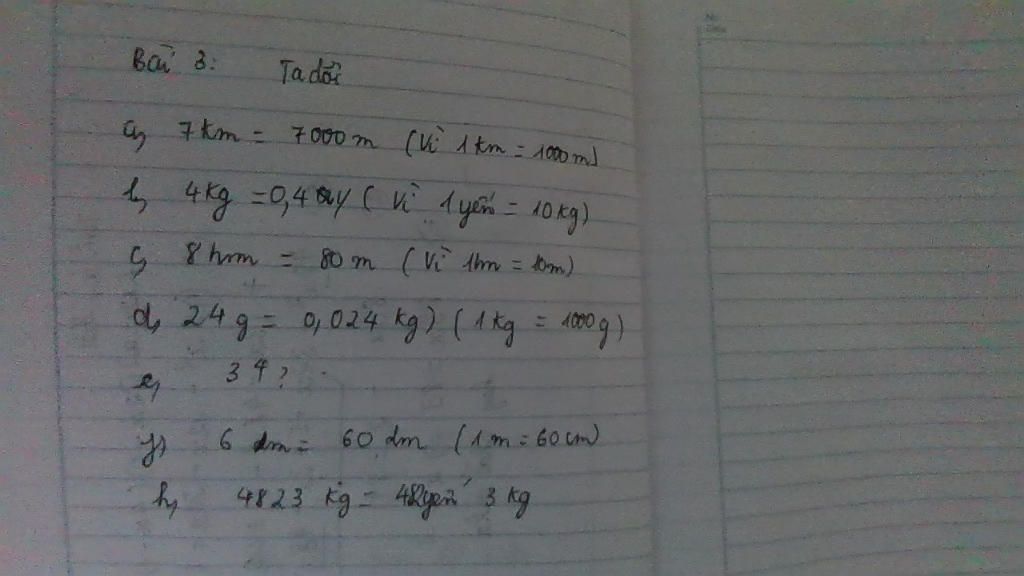 Bài 3: Ta đổi
a, 7 km = 7000 m (Vì 1 km = 1000 m)
b, 4 kg = 0,4 y ( Vì 1 yến = 10 kg)
c, 8 hm = 80 m (Vì 1hm = 10m)
d, 24 g = 0,024 kg) ( 1 kg = 1000 g)
e, 34 ?
g) 6 dm = 60 dm (1 m = 60 cm)
h, 4823 kg = 482 yến 3 kg